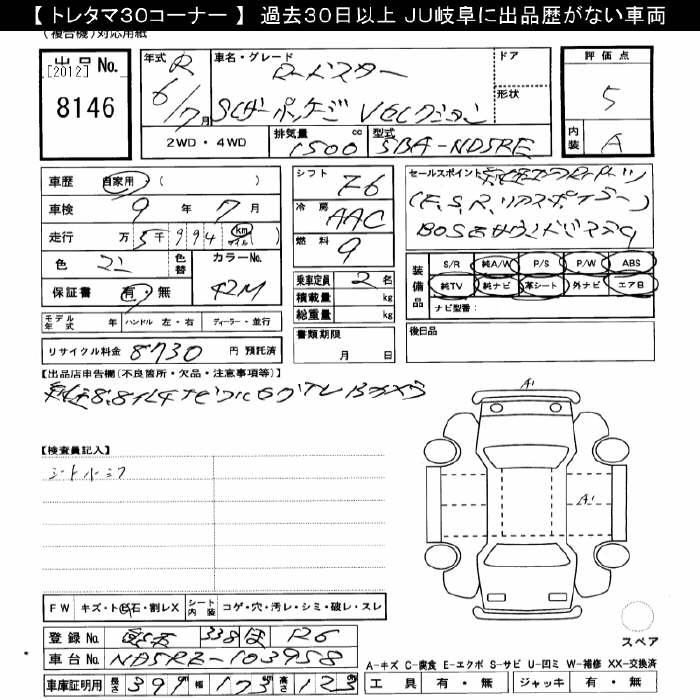 【トレタマ30コーナー】 過去30日以上 JU岐阜に出品歴がない車両
(複合機)対応用紙
出品No.
[2012]
8146
年式 R 6/7月
車名・グレード ロードスター
Sレザーパッケージ Vセレクション
ドア
形状
2WD・4WD 排気量 1500 cc 型式 5BA-ND5RE
評価点 5
内装 A
車歴 自家用 ( )
車検 9年 7月
走行 万 5千 994 km マイル ( )
色 コン 色替 カラーNo. 42M
保証書 有・無
モデル年式 年 ハンドル 左・右 ディーラー・並行
リサイクル料金 8730 円 預託済
シフト F6
冷房 AAC
燃料 9
乗車定員 2名
積載量 kg
総重量 kg
書類期限 月 日
セールスポイント
(F,S,R,リアスポイラー)
BOSEサウンドシステム
装備品 S/R 純A/W P/S P/W ABS
純TV 純ナビ 革シート 外ナビ エアB
ナビ型番:
後日品
【出品店申告欄(不良箇所・欠品・注意事項等)】
8.8インチナビフルセグTV Bカメラ
【検査員記入】
A1
A1
FW キズ・ト ビ石・割レX シート内装 コゲ・穴・汚レ・シミ・破レ・スレ
登録No. 338 ほ R6
車台No. ND5RE-103958
車庫証明用 長さ 399 幅 173 高さ 123
スペア
A-キズ C-腐食 E-エクボ S-サビ U-凹ミ W-補修 XX-交換済
工具 有・無 ジャッキ 有・無